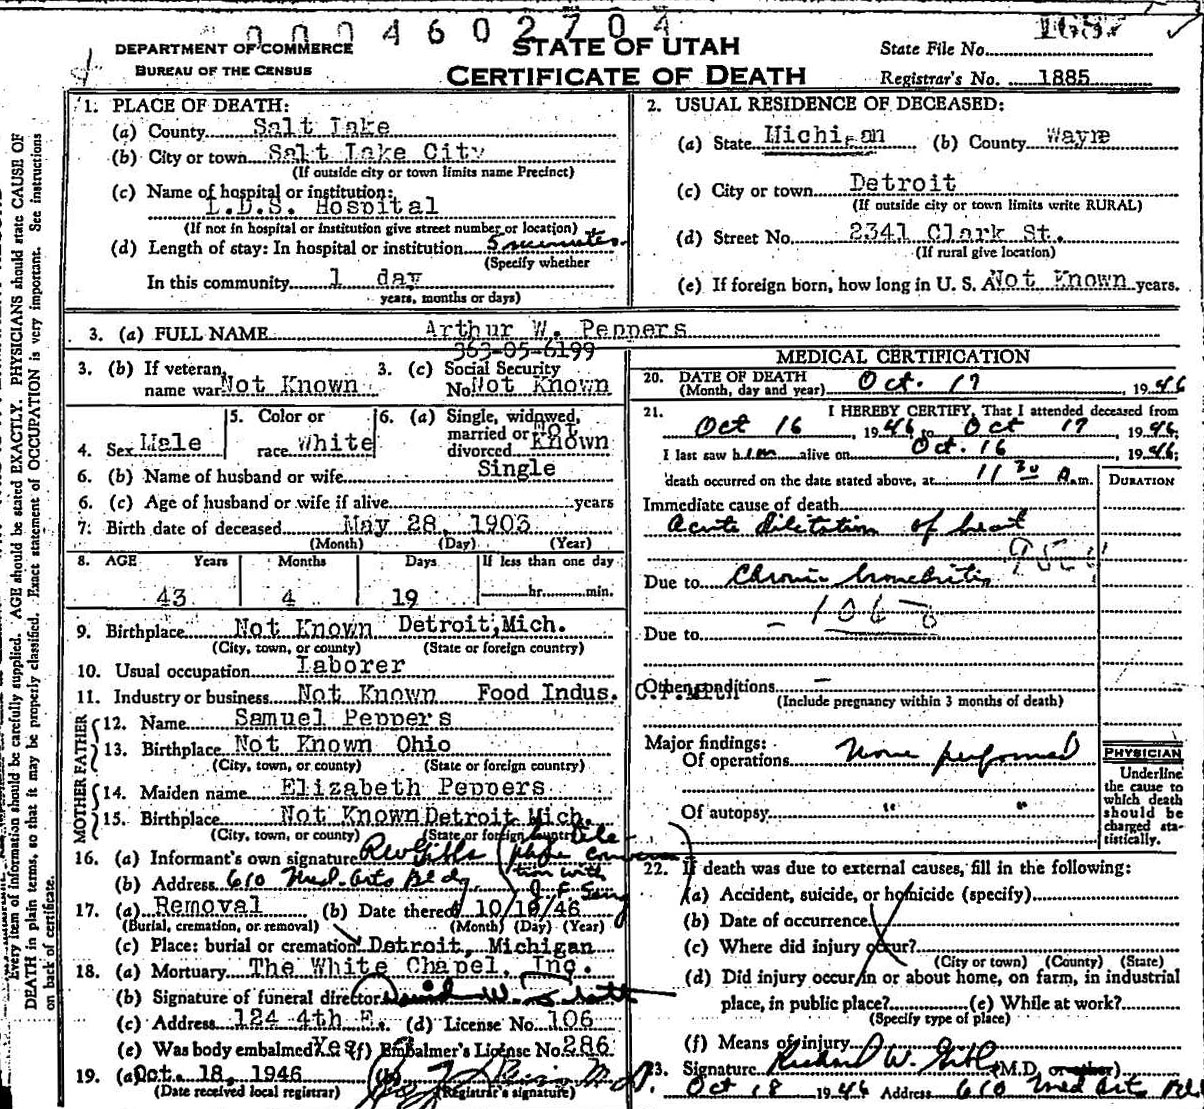 0004602704
DEPARTMENT OF COMMERCE
BUREAU OF THE CENSUS
STATE OF UTAH
CERTIFICATE OF DEATH
State File No.
Registrar's No. 1885
1. PLACE OF DEATH:
(a) County Salt Lake
(b) City or town Salt Lake City
(If outside city or town limits name Precinct)
(c) Name of hospital or institution:
L.D.S. Hospital
(If not in hospital or institution give street number or location)
(d) Length of stay: In hospital or institution 5 minutes
(Specify whether
In this community 1 day
years, months or days)
2. USUAL RESIDENCE OF DECEASED:
(a) State Michigan (b) County Wayne
(c) City or town Detroit
(If outside city or town limits write RURAL)
(d) Street No. 2341 Clark St.
(If rural give location)
(e) If foreign born, how long in U. S. A. Not Known years.
3. (a) FULL NAME Arthur W. Peppers
363-05-6199
3. (b) If veteran, name war Not Known
3. (c) Social Security No. Not Known
4. Sex Male
5. Color or race White
6. (a) Single, widowed, married or divorced Not Known
6. (b) Name of husband or wife Single
6. (c) Age of husband or wife if alive years
7. Birth date of deceased May 28, 1903
(Month) (Day) (Year)
8. AGE Years Months Days If less than one day
43 4 19 hr. min.
9. Birthplace Not Known Detroit, Mich.
(City, town, or county) (State or foreign country)
10. Usual occupation Laborer
11. Industry or business Not Known Food Indus.
FATHER
12. Name Samuel Peppers
13. Birthplace Not Known Ohio
(City, town, or county) (State or foreign country)
MOTHER
14. Maiden name Elizabeth Peppers
15. Birthplace Not Known Detroit Mich.
(City, town, or county) (State or foreign country)
16. (a) Informant's own signature
(b) Address 610 Med. Arts Bldg.
17. (a) Removal (b) Date thereof
(Burial, cremation, or removal) (Month) (Day) (Year)
(c) Place: burial or cremation Detroit, Michigan
18. (a) Mortuary The White Chapel, Inc.
(b) Signature of funeral director
(c) Address 124 4th E. (d) License No. 106
(e) Was body embalmed Yes (f) Embalmer's License No. 286
19. (a) Oct. 18, 1946 (b)
(Date received local registrar) (Registrar's signature)
MEDICAL CERTIFICATION
20. DATE OF DEATH Oct. 17 1946
(Month, day and year)
21. I HEREBY CERTIFY, That I attended deceased from
Oct 16, 1946 to Oct 17 1946
I last saw him alive on Oct. 16, 1946;
death occurred on the date stated above, at 11 30 A.m.
DURATION
Immediate cause of death
Acute dilitation of heart
Due to Chronic bronchitis
106
Due to
Other conditions
(Include pregnancy within 3 months of death)
Major findings:
Of operations None performed
Of autopsy " "
PHYSICIAN
Underline the cause to which death should be charged statistically.
22. If death was due to external causes, fill in the following:
(a) Accident, suicide, or homicide (specify)
(b) Date of occurrence
(c) Where did injury occur?
(City or town) (County) (State)
(d) Did injury occur in or about home, on farm, in industrial
place, in public place? (e) While at work?
(Specify type of place)
(f) Means of injury
23. Signature Richard W. (M.D. or other)
Oct 18 1946 Address 610 Med Arts Bl
Every item of information should be carefully supplied. AGE should be stated EXACTLY. PHYSICIANS should state CAUSE OF
DEATH in plain terms, so that it may be properly classified. Exact statement of OCCUPATION is very important. See instructions
on back of certificate.